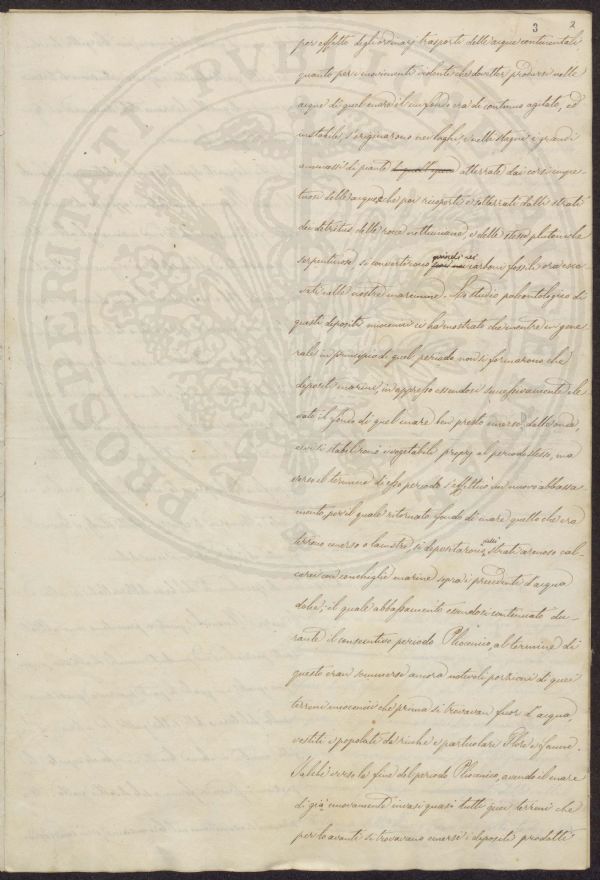 3 2
per effetto degli ordinarj trasporti delle acque continentali
quanto per i movimenti violenti che dovetter prodursi nelle
acque di quel mare il cui fondo era di continuo agitato, ed
instabile, s'originarono nei laghi, e nelli stagni i grandi
ammassi di piante atterrate dai corsi impe-
tuosi delle acque che poi ricoperti e sotterrati dalli strati
dei detritus delle rocce nettuniane, e delle stesse plutoniche
serpentinose si convertirono quindi nei carboni fossili ora esca-
vati nelle nostre maremme. Lo studio paleontologico di
questi depositi miocenici ci ha mostrato che mentre in gene-
rale in principio di quel periodo non si formarono che
depositi marini, in appresso essendosi successivamente ele-
vato il fondo di quel mare ben presto emerso dalle onde,
e vi si stabilirono i vegetabili proprj al periodo stesso, ma
verso il termine di esso periodo s'effettuò un nuovo abbassa-
mento, per il quale ritornato fondo di mare quello che era
terreno emerso o lacustre, si depositarono strati arenoso cal-
carei con conchiglie marine sopra i precedenti d'acqua
dolce; il quale abbassamento essendosi continuato du-
rante il consecutivo periodo Pliocenico, al termine di
questo eran sommerse ancora notevoli porzioni di quei
terreni miocenici che prima si trovavan fuor d'acqua,
vestiti e popolati da ricche e particolari Flore e faune.
Talchè verso la fine del periodo Pliocenico, quando il mare
di già nuovamente invasi quasi tutti quei terreni che
per lo avanti si trovavano emersi i depositi prodotti
PROSPERITATI PVBLICAE